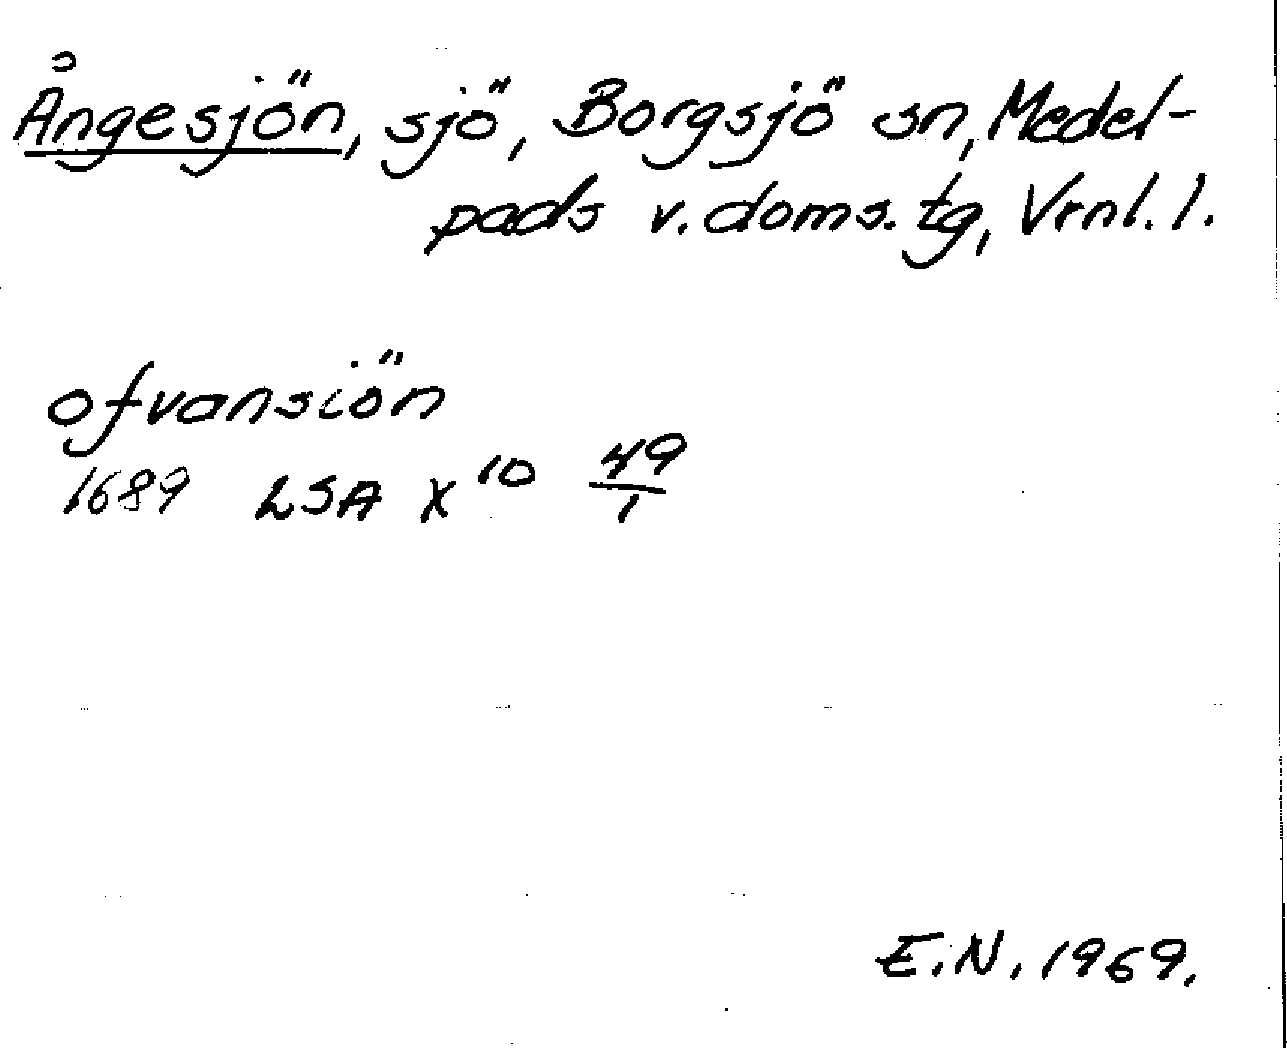 Ångesjön, sjö, Borgsjö sn, Medel-
pads v. doms. tg, Vrnl. l.
ofvansiön
1689 LSA X 10 49/1
E.N. 1969.